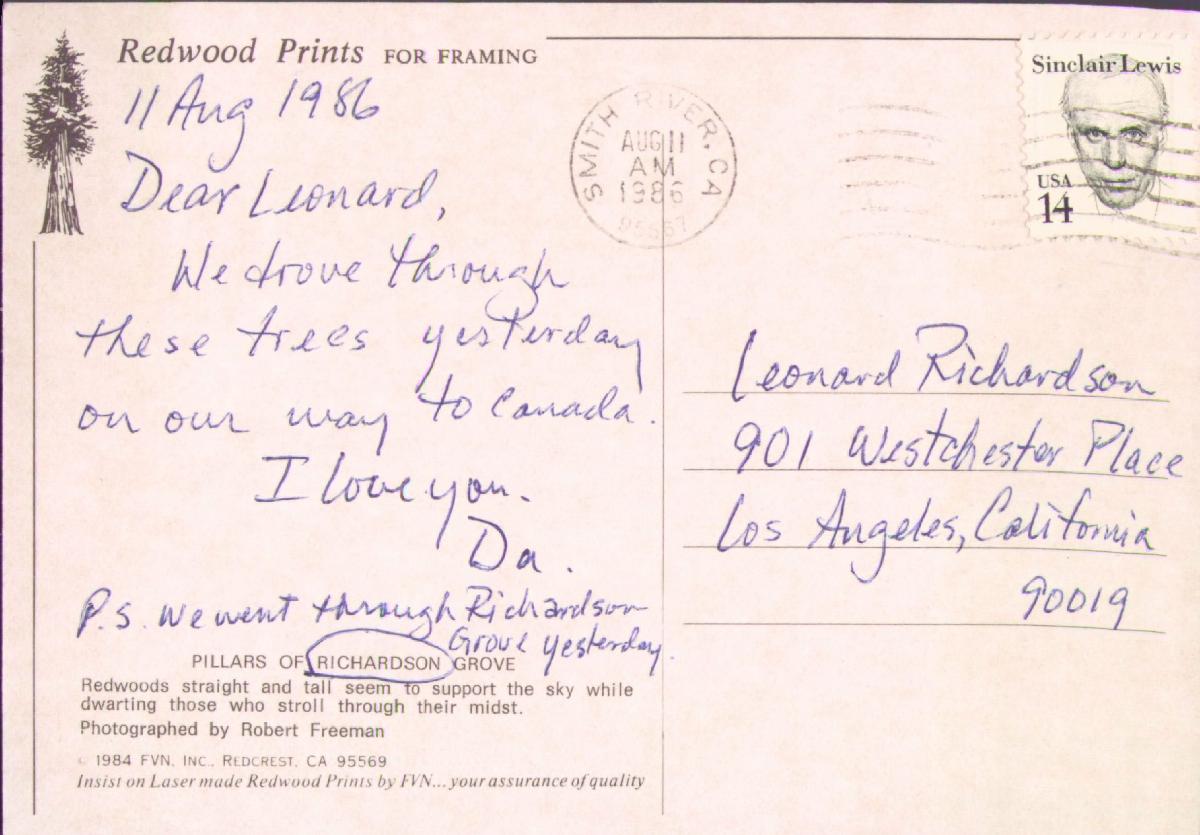 Redwood Prints FOR FRAMING
11 Aug 1986
Dear Leonard,
We drove through
these trees yesterday
on our way to Canada.
I love you.
Da.
P.S. We went through Richardson
Grove yesterday.
PILLARS OF RICHARDSON GROVE
Redwoods straight and tall seem to support the sky while
dwarting those who stroll through their midst.
Photographed by Robert Freeman
© 1984 FVN, INC., REDCREST, CA 95569
Insist on Laser made Redwood Prints by FVN... your assurance of quality
SMITH RIVER, CA
AUG 11
AM
1986
95567
Sinclair Lewis
USA
14
Leonard Richardson
901 Westchester Place
Los Angeles, California
90019